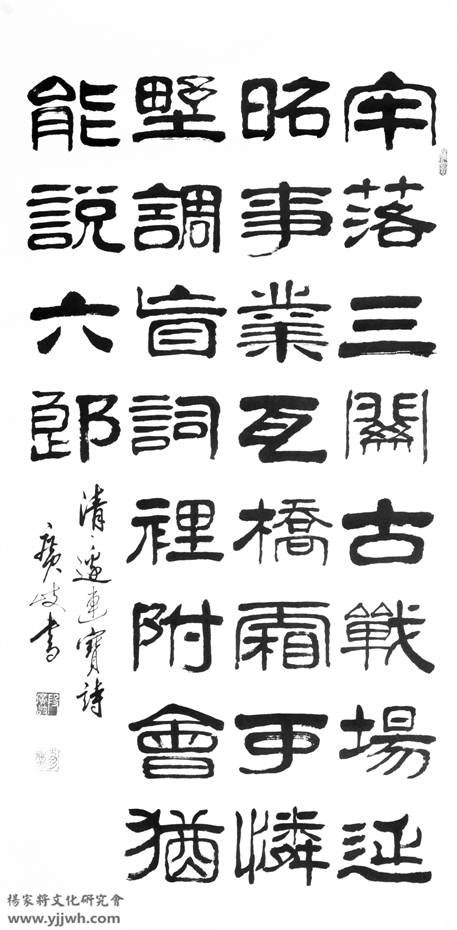 牢落三關古戰場延
昭事業瓦橋霜可憐
墅調盲詞裡附會猶
能說六郎
清、邊連寶詩
廣岐書
楊家將文化研究會
www.yjjwh.com